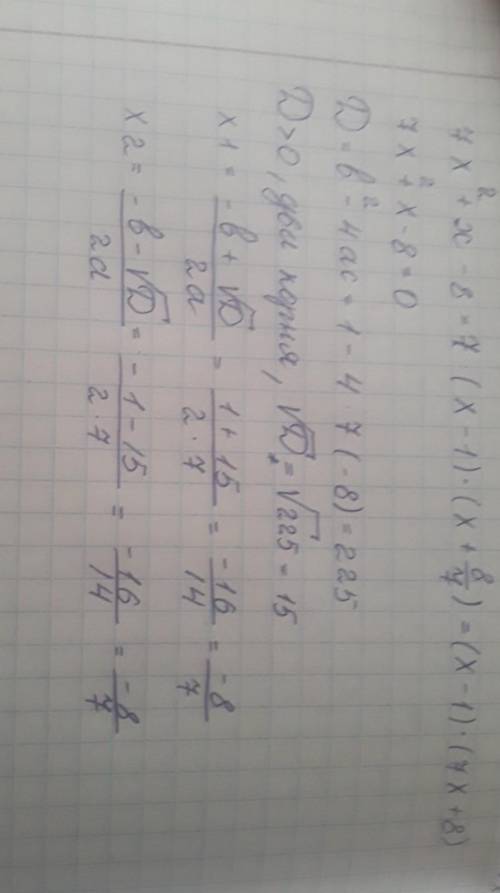 7x² + x - 8 = 7 (x - 1) · (x + 8/7) = (x - 1) · (7x + 8)
7x² + x - 8 = 0
D = b² - 4ac = 1 - 4 · 7 (-8) = 225
D > 0, два корня, √D = √225 = 15
x1 = (-b + √D)/2a = (1 + 15)/(2 · 7) = -16/14 = -8/7
x2 = (-b - √D)/2a = (-1 - 15)/(2 · 7) = -16/14 = -8/7